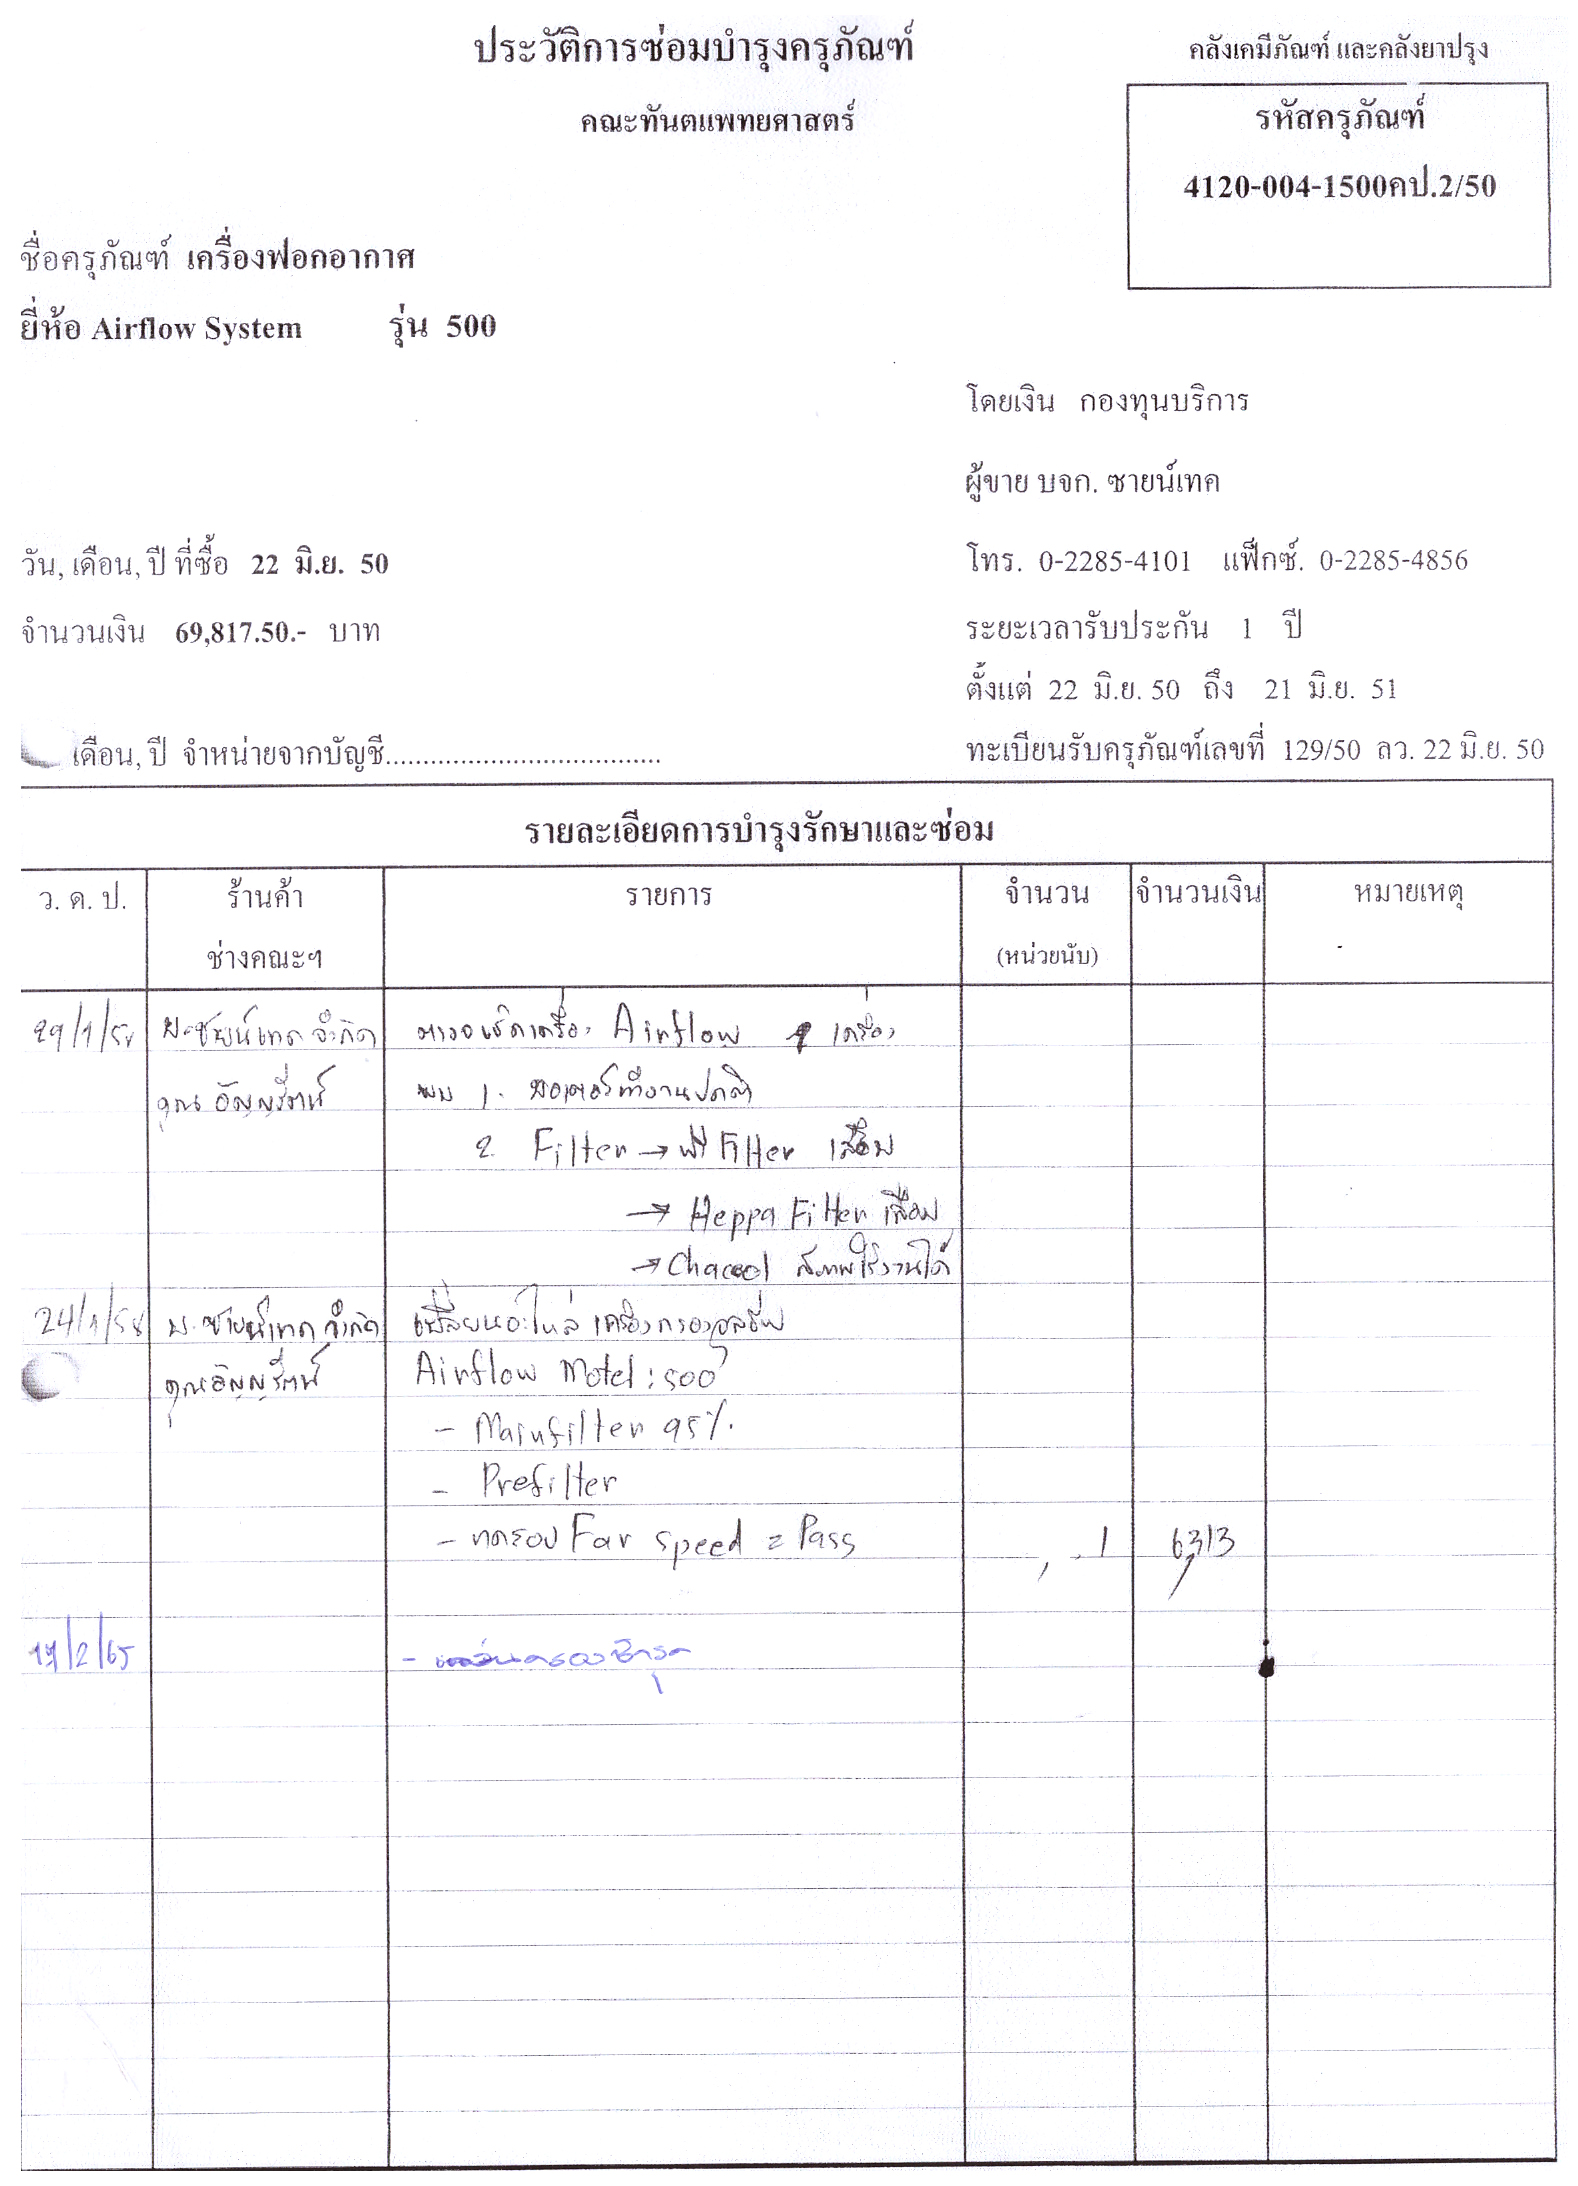 ประวัติการซ่อมบำรุงครุภัณฑ์
คลังเคมีภัณฑ์ และคลังยาปรุง
คณะทันตแพทยศาสตร์
รหัสครุภัณฑ์
4120-004-1500คป.2/50
ชื่อครุภัณฑ์ เครื่องฟอกอากาศ
ยี่ห้อ Airflow System รุ่น 500
โดยเงิน กองทุนบริการ
ผู้ขาย บจก. ซายน์เทค
วัน, เดือน, ปี ที่ซื้อ 22 มิ.ย. 50
โทร. 0-2285-4101 แฟ็กซ์. 0-2285-4856
จำนวนเงิน 69,817.50.- บาท
ระยะเวลารับประกัน 1 ปี
ตั้งแต่ 22 มิ.ย. 50 ถึง 21 มิ.ย. 51
เดือน, ปี จำหน่ายจากบัญชี.....................................
ทะเบียนรับครุภัณฑ์เลขที่ 129/50 ลว. 22 มิ.ย. 50
รายละเอียดการบำรุงรักษาและซ่อม
ว. ด. ป. ร้านค้า รายการ จำนวน จำนวนเงิน หมายเหตุ
ช่างคณะฯ (หน่วยนับ)
บ.ซายน์เทค จำกัด ตรวจเช็คเครื่อง Airflow เครื่อง
คุณ อัญญรัตน์ พบ 1. มอเตอร์ทำงานปกติ
2. Filter → Filter เสื่อม
→ Heppa Filter เสื่อม
→ สภาพใช้งานได้
บ.ซายน์เทค จำกัด เปลี่ยนอะไหล่ เครื่องกรอง
คุณอัญญรัตน์ Airflow Motel : 500
- Mainfilter 95%
- Prefilter
- ทดสอบ Fan speed = Pass 1 6,313
/2/65